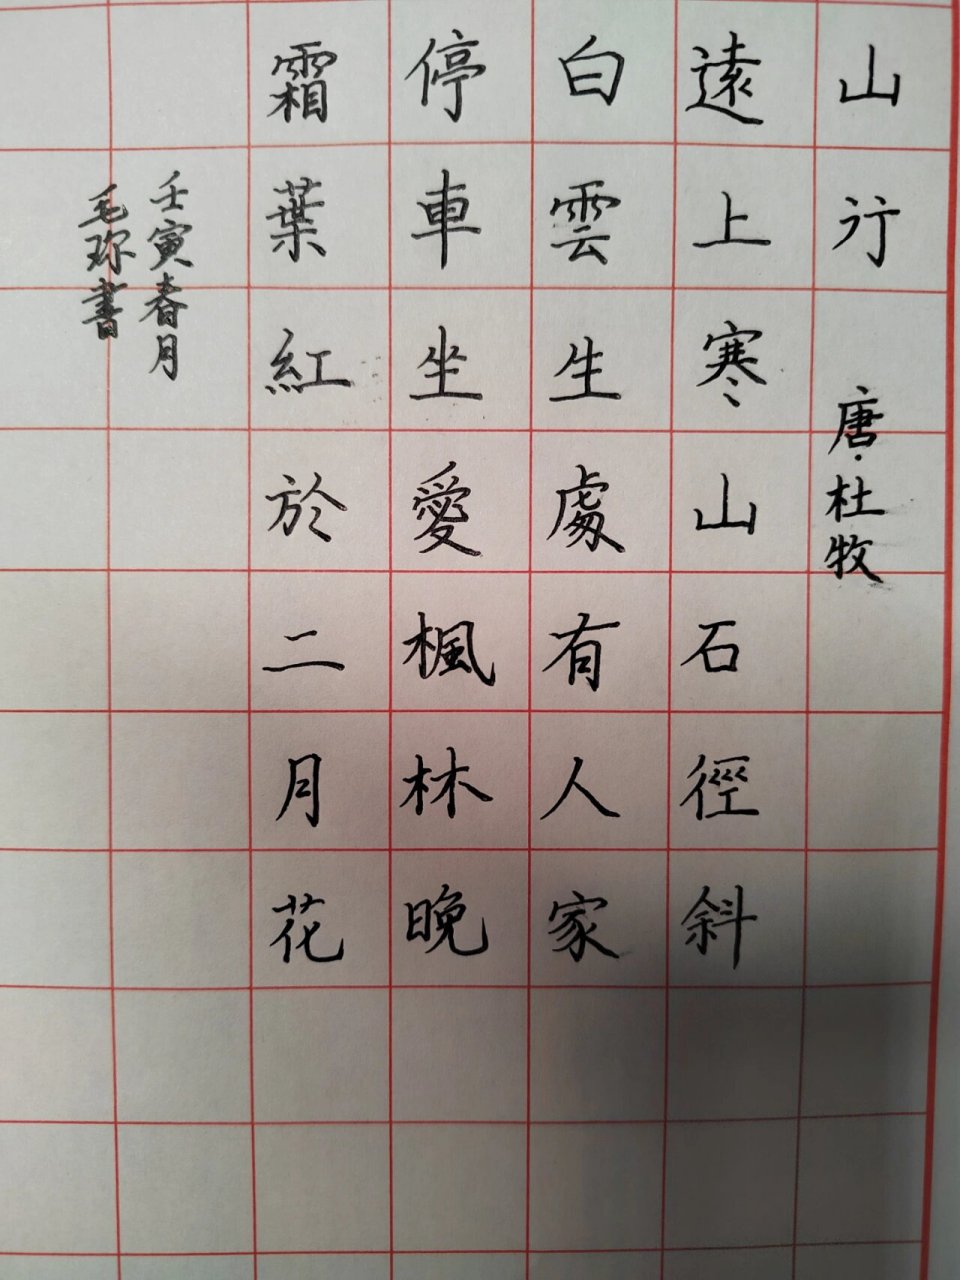 山行 唐·杜牧
遠上寒山石徑斜
白雲生處有人家
停車坐愛楓林晚
霜葉紅於二月花
壬寅春月
毛珎書